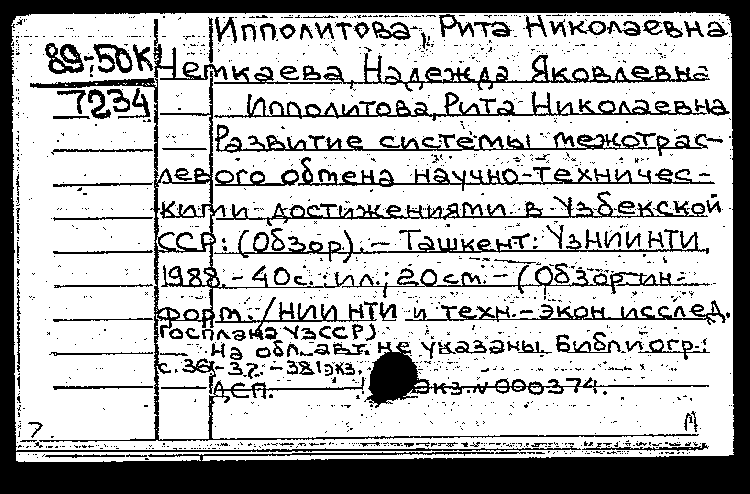 Ипполитова, Рита Николаевна
89-50К
7234
Четкаева, Надежда Яковлевна
Ипполитова, Рита Николаевна
Развитие системы межотрас-
левого обмена научно-техничес-
кими достижениями в Узбекской
ССР: (Обзор). - Ташкент: УзНИИНТИ,
1988. - 40с.: ил.; 20см. - (Обзор. ин-
форм. / НИИ НТИ и техн.-экон исслед.
Госплана УзССР)
На обл. авт. не указаны. Библиогр.:
с. 36-37. - 381 экз.
ДСП. экз. N 000374.
7 М